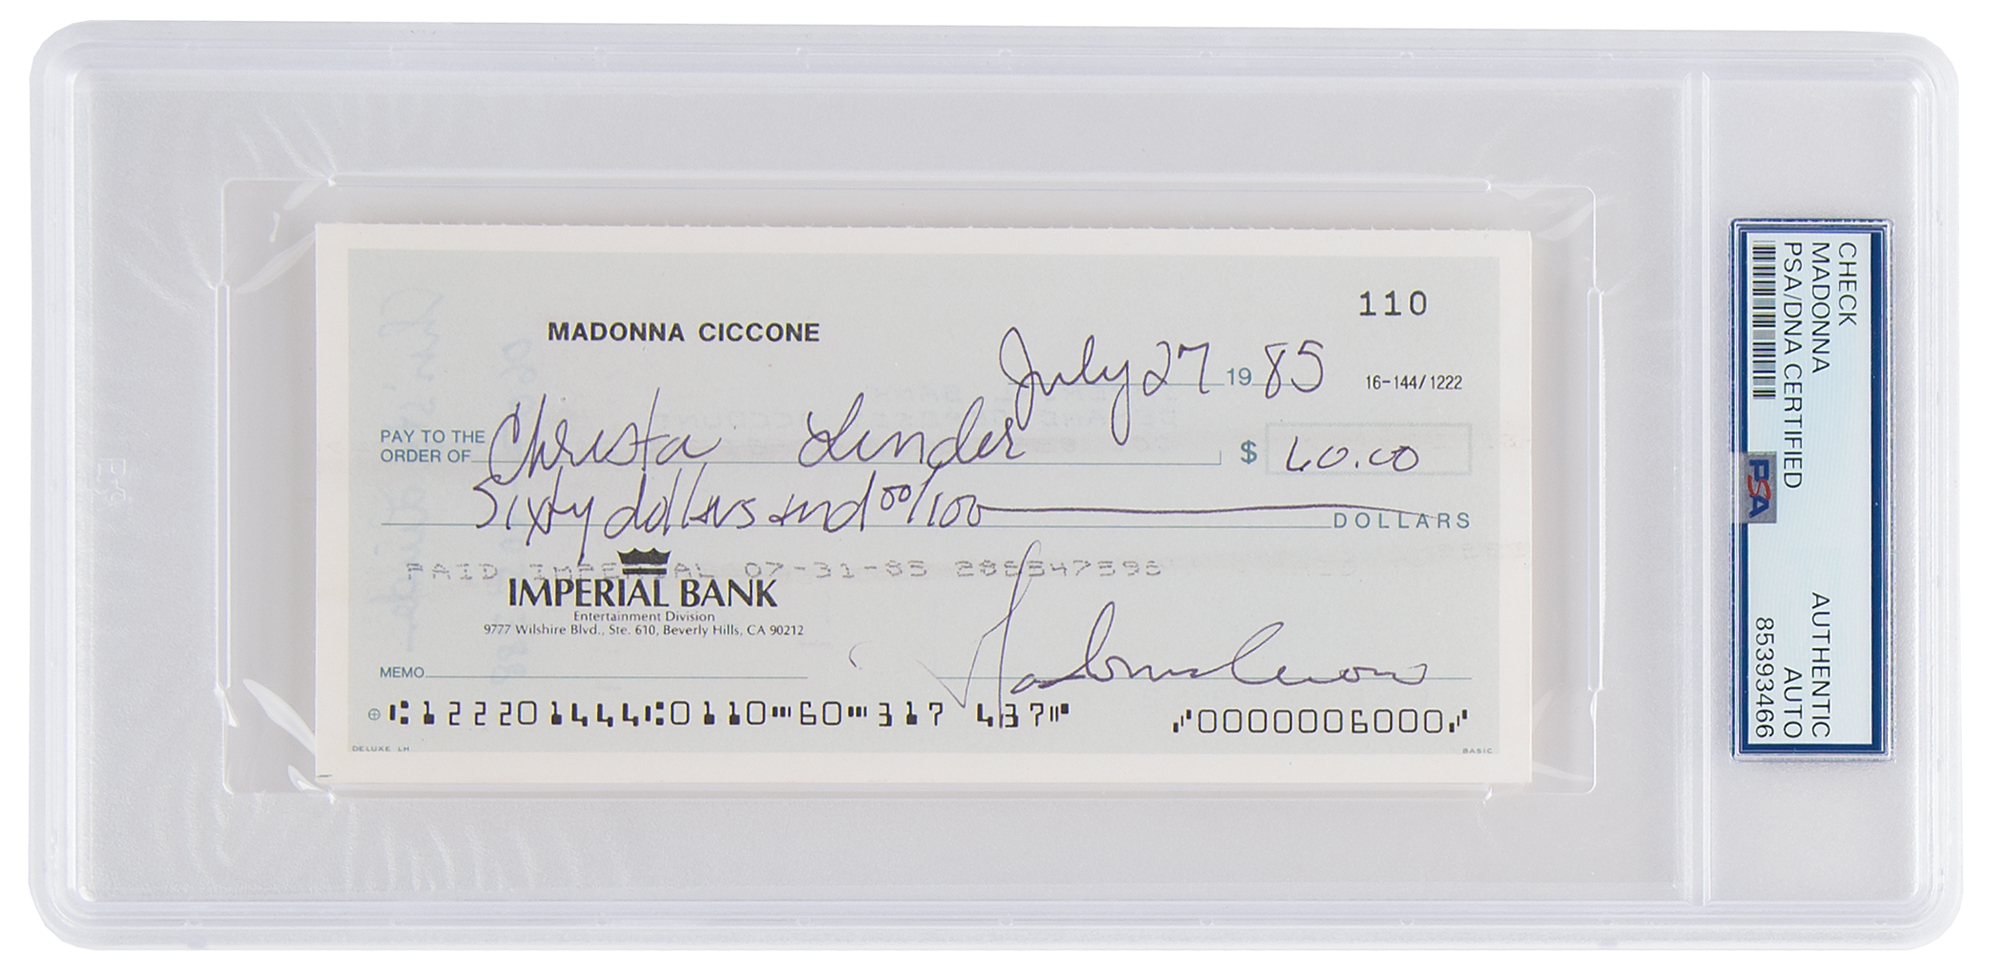 110
MADONNA CICCONE
July 27 1985
16-144/1222
PAY TO THE ORDER OF Christa Linder $ 60.00
Sixty dollars and 00/100 DOLLARS
PAID IMPERIAL 07-31-85 286547596
IMPERIAL BANK
Entertainment Division
9777 Wilshire Blvd., Ste. 610, Beverly Hills, CA 90212
MEMO Madonna Ciccone
⑆122201444⑆0110⑈60⑈317 437⑈ ⑇0000006000⑇
DELUXE LH BASIC
CHECK
MADONNA
PSA/DNA CERTIFIED
PSA
AUTHENTIC
AUTO
85393466